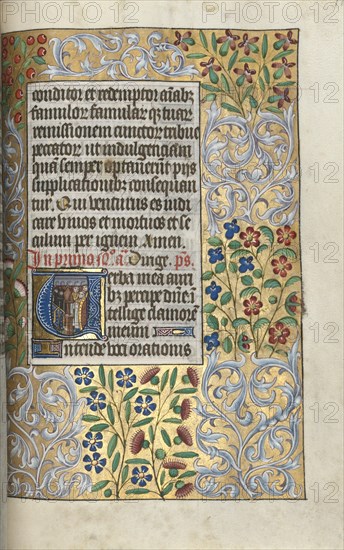 conditor et redemptor aīabȝ
famulor famular qȝ tuar
remissionem cūctor tribue
peccator ut indulgentiam
quā semper optauerūt pijs
supplicationibȝ consequan
tur. Qui venturus es iudi
care viuos et mortuos et se
culum per ignem Amen.
In primo nō. a. Dirige. ps.
Uerba mea auri
bȝ percipe dn̄e ī
tellige clamorē
meum
Intende voci orationis